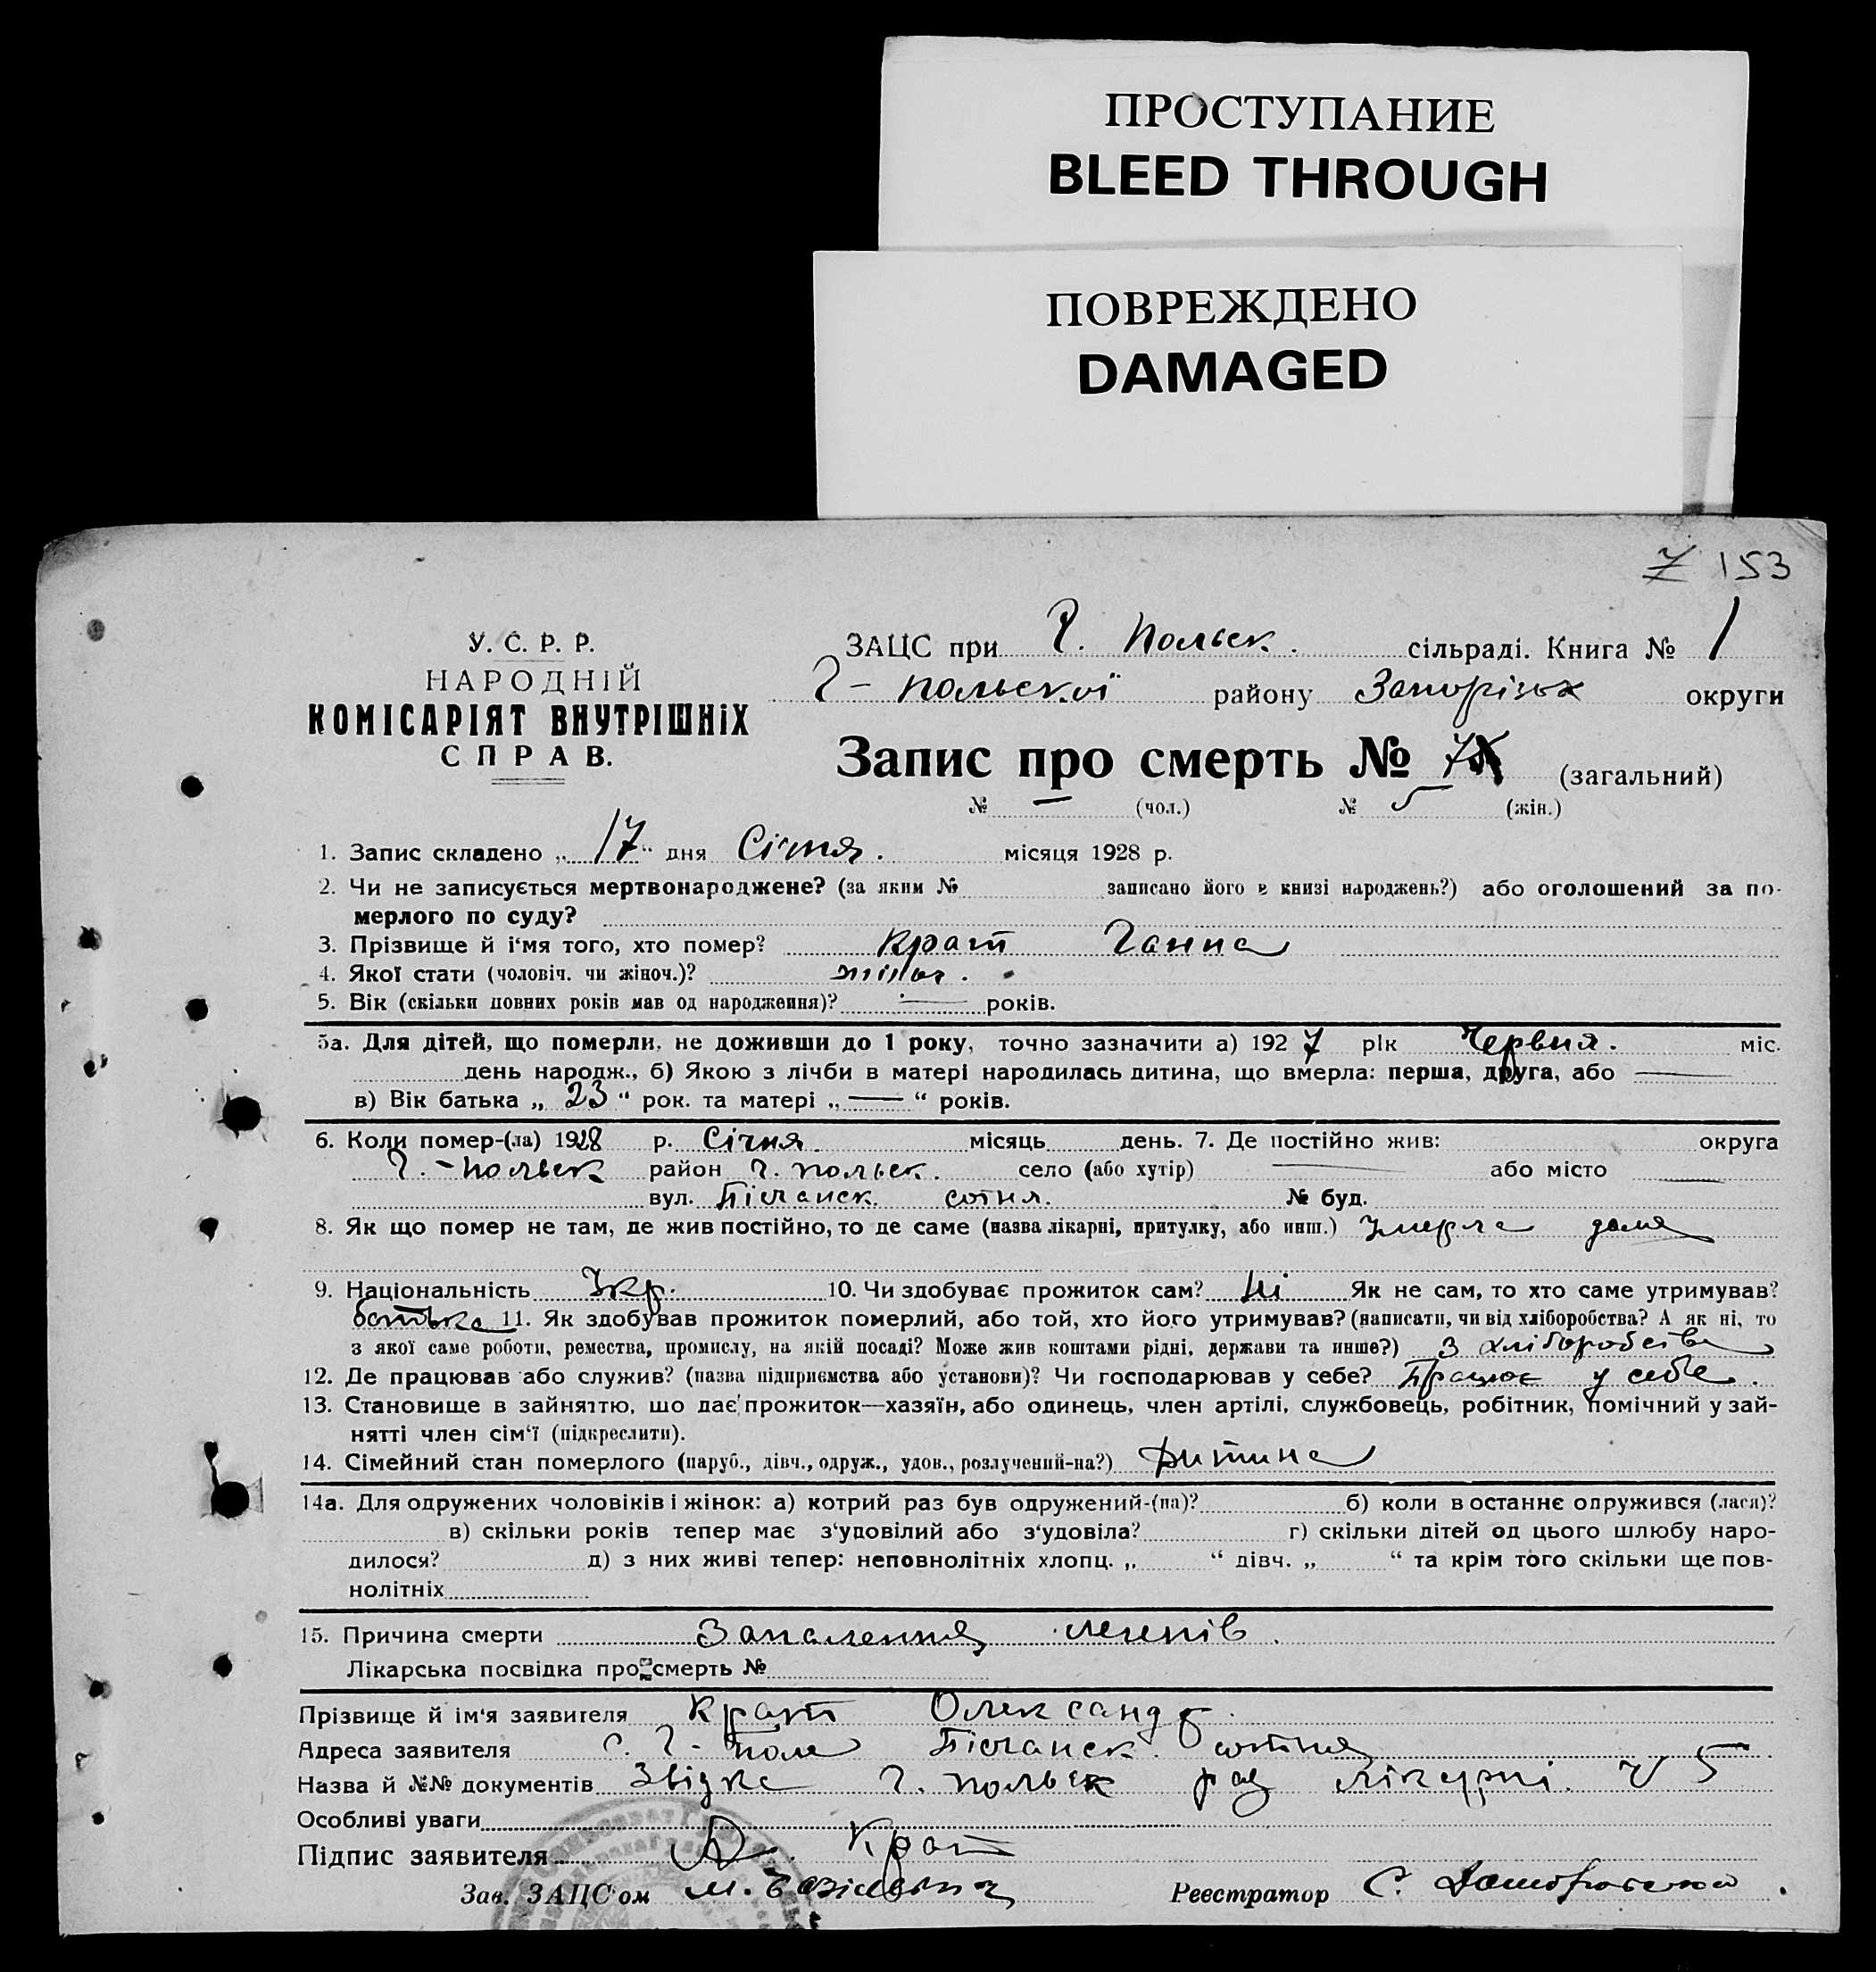 ПРОСТУПАНИЕ
BLEED THROUGH
ПОВРЕЖДЕНО
DAMAGED
Z 153
У. С. Р. Р.
НАРОДНІЙ
КОМІСАРІЯТ ВНУТРІШНІХ
СПРАВ.
ЗАЦС при Г. Польск. сільраді. Книга № 1
Г-польскої району Запорізьк округи
Запис про смерть № 7 (загальний)
№ — (чол.) № 5 (жін.)
1. Запис складено „ 17 “ дня Січня. місяця 1928 р.
2. Чи не записується мертвонароджене? (за яким № записано його в книзі народжень?) або оголошений за по-
мерлого по суду?
3. Прізвище й і'мя того, хто помер? Крат Ганна
4. Якої стати (чоловіч. чи жіноч.)? жіноч.
5. Вік (скільки повних років мав од народження)? — років.
5а. Для дітей, що померли, не доживши до 1 року, точно зазначити а) 1927 рік Червня. міс.
день народж., б) Якою з лічби в матері народилась дитина, що вмерла: перша, друга, або —
в) Вік батька „ 23 “ рок. та матері „ — “ років.
6. Коли помер-(ла) 1928 р. Січня місяць день. 7. Де постійно жив: округа
Г.-польск район Г. польск. село (або хутір) — або місто —
вул. Пісчанск. сотня. № буд.
8. Як що помер не там, де жив постійно, то де саме (назва лікарні, притулку, або инш.) Умерла дома
9. Національність Укр. 10. Чи здобуває прожиток сам? Ні Як не сам, то хто саме утримував?
батько 11. Як здобував прожиток померлий, або той, хто його утримував? (написати, чи від хліборобства? А як ні, то
з якої саме роботи, ремества, промислу, на якій посаді? Може жив коштами рідні, держави та инше?) З хліборобства
12. Де працював або служив? (назва підприємства або установи)? Чи господарював у себе? Працює у себе.
13. Становище в зайняттю, що дає прожиток—хазяїн, або одинець, член артілі, службовець, робітник, помічний у зай-
нятті член сім'ї (підкреслити).
14. Сімейний стан померлого (паруб., дівч., одруж., удов., розлучений-на?) Дитина
14а. Для одружених чоловіків і жінок: а) котрий раз був одружений-(на)? б) коли востаннє одружився (лася)?
в) скільки років тепер має з'удовілий або з'удовіла? г) скільки дітей од цього шлюбу наро-
дилося? д) з них живі тепер: неповнолітніх хлопц. „ “ дівч. „ “ та крім того скільки ще пов-
нолітніх
15. Причина смерти Запалення легенів.
Лікарська посвідка про смерть №
Прізвище й ім'я заявителя Крат Олександр
Адреса заявителя с. Г-поле Пісчанск. сотня
Назва й №№ документів Звідка Г. польск рай лікарні. № 5
Особливі уваги
Підпис заявителя Крат
Зав. ЗАЦС'ом М.
Реєстратор С.